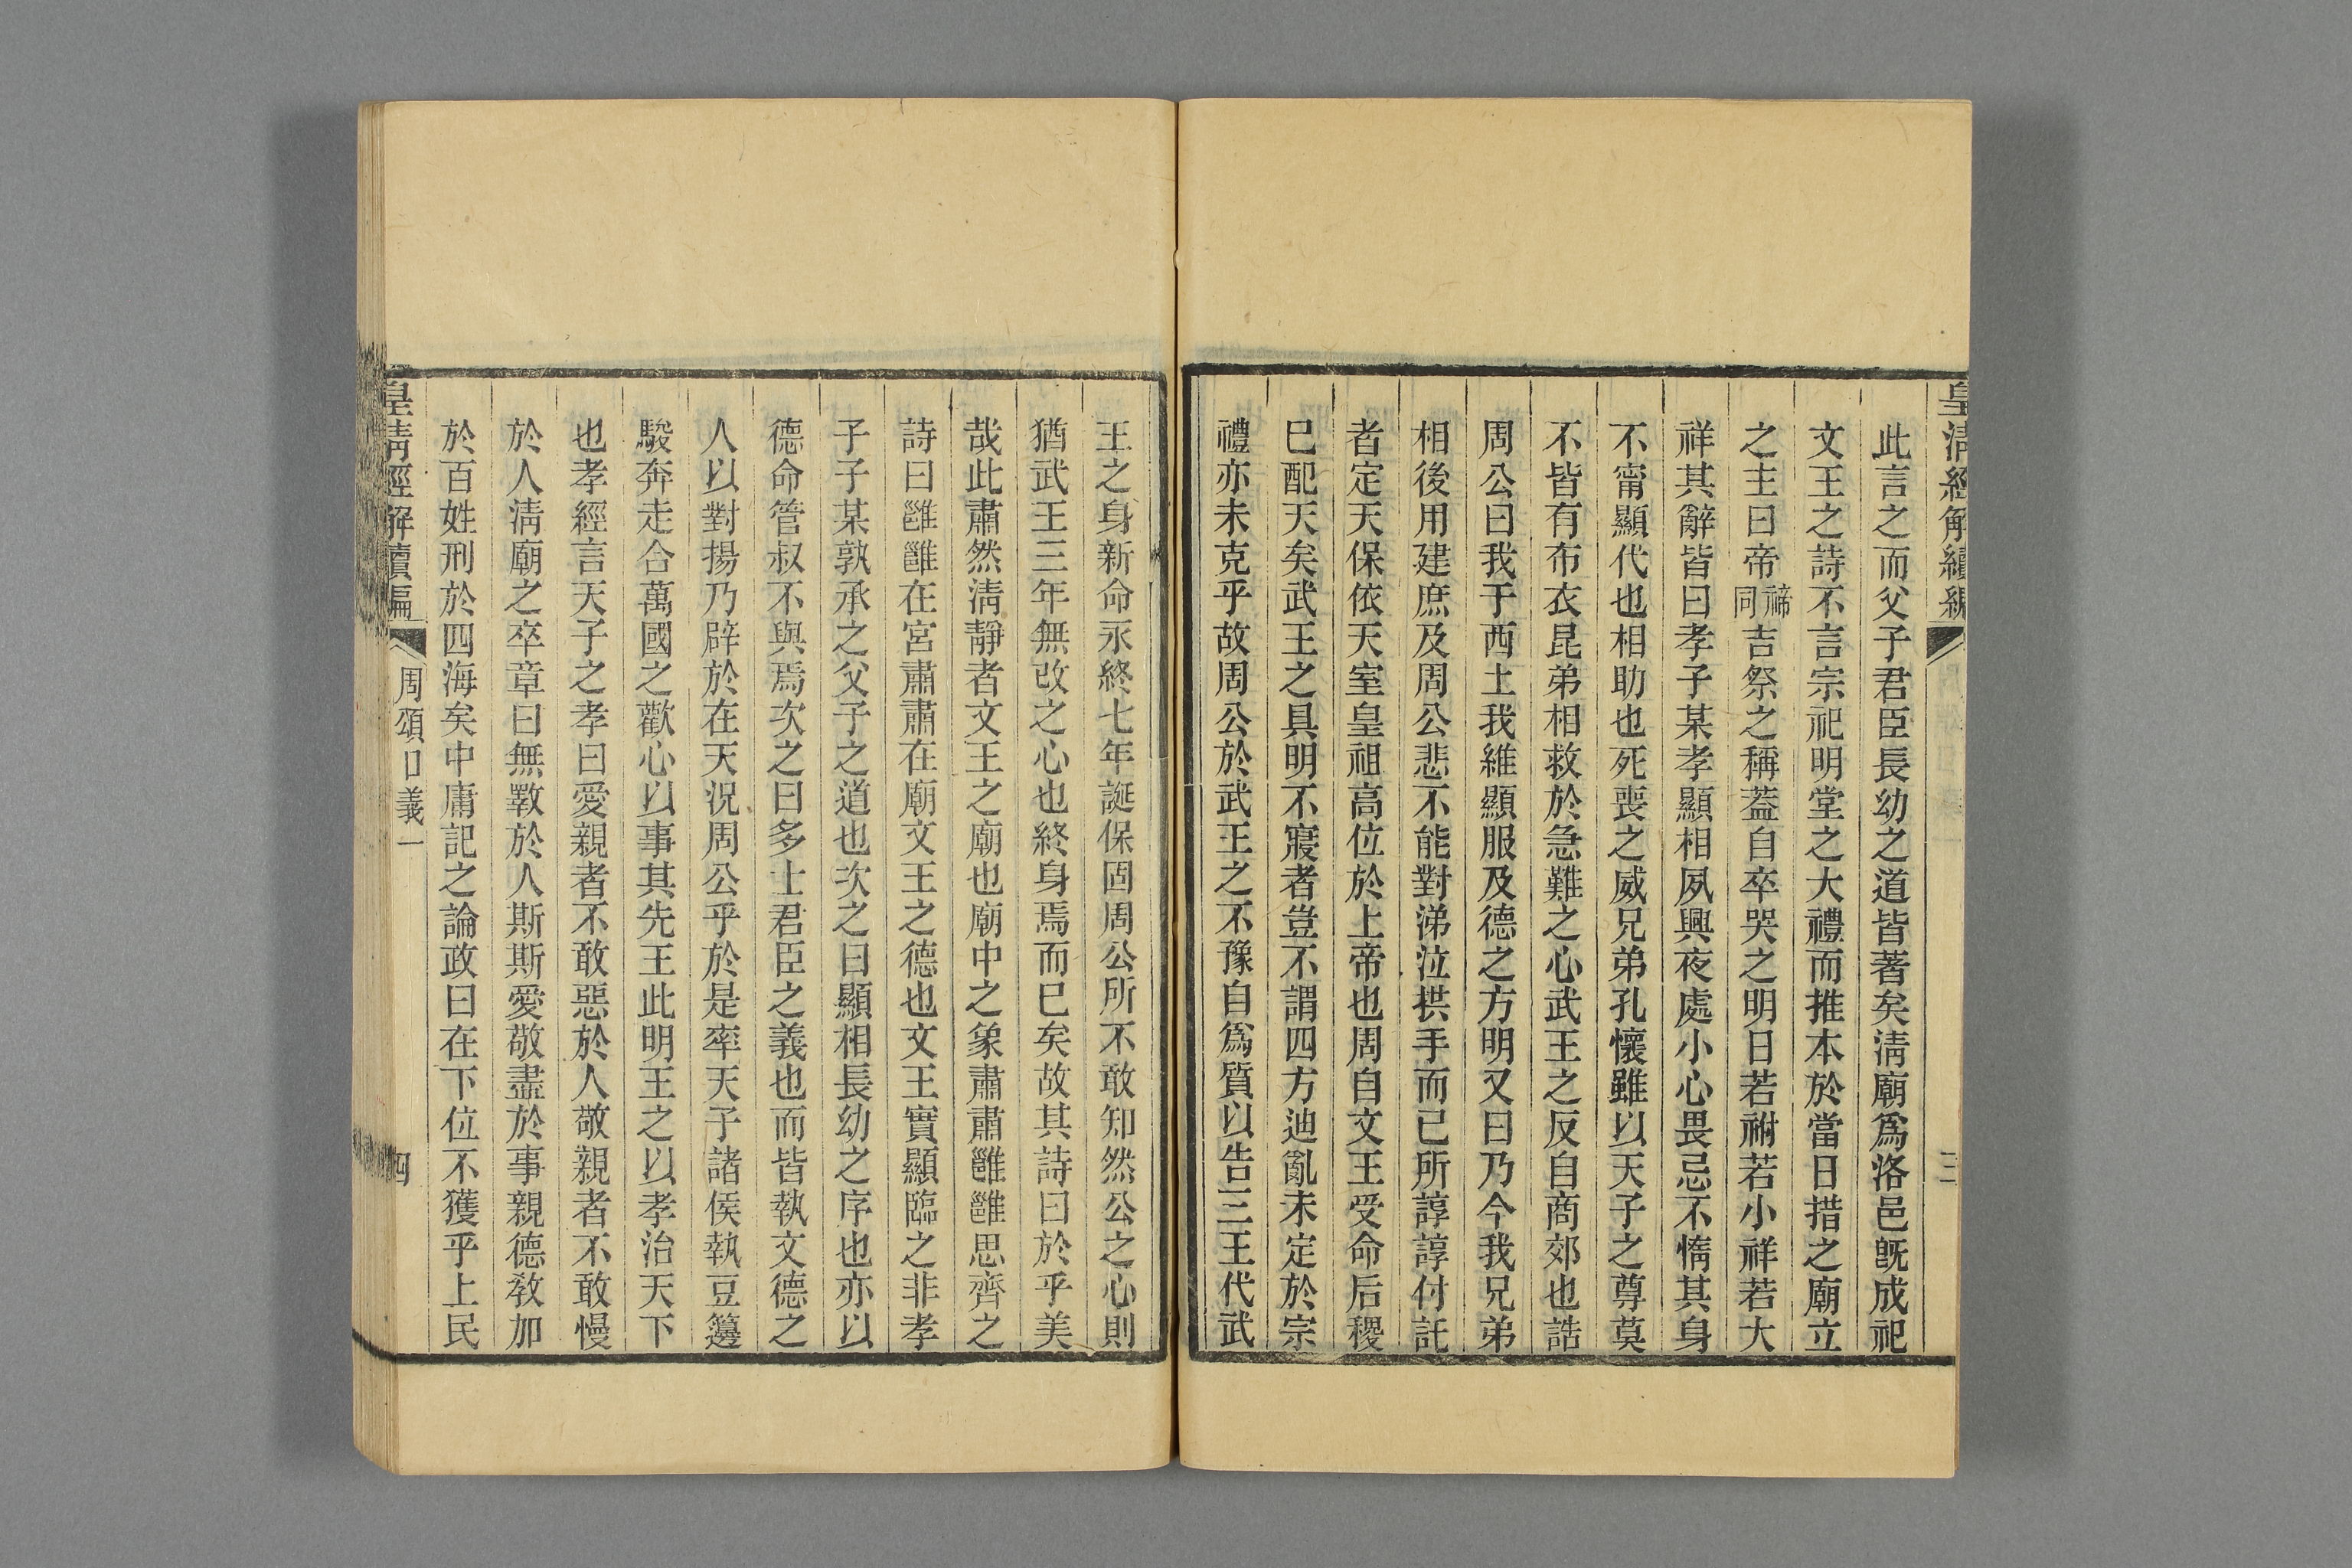 皇清經解續編
三
此言之而父子君臣長幼之道皆著矣清廟爲洛邑旣成祀
文王之詩不言宗祀明堂之大禮而推本於當日措之廟立
之主曰帝禘同吉祭之稱葢自卒哭之明日若祔若小祥若大
祥其辭皆曰孝子某孝顯相夙興夜處小心畏忌不惰其身
不甯顯代也相助也死喪之威兄弟孔懷雖以天子之尊莫
不皆有布衣昆弟相救於急難之心武王之反自商郊也誥
周公曰我于西土我維顯服及德之方明又曰乃今我兄弟
相後用建庶及周公悲不能對涕泣拱手而已所諄諄付託
者定天保依天室皇祖高位於上帝也周自文王受命后稷
已配天矣武王之具明不寢者豈不謂四方迪亂未定於宗
禮亦未克乎故周公於武王之不豫自爲質以告三王代武
王之身新命永終七年誕保固周公所不敢知然公之心則
猶武王三年無改之心也終身焉而已矣故其詩曰於乎美
哉此肅然清靜者文王之廟也廟中之象肅肅雝雝思齊之
詩曰雝雝在宮肅肅在廟文王之德也文王實顯臨之非孝
子子某孰承之父子之道也次之曰顯相長幼之序也亦以
德命管叔不與焉次之曰多士君臣之義也而皆執文德之
人以對揚乃辟於在天況周公乎於是率天子諸侯執豆籩
駿奔走合萬國之歡心以事其先王此明王之以孝治天下
也孝經言天子之孝曰愛親者不敢惡於人敬親者不敢慢
於人清廟之卒章曰無斁於人斯斯愛敬盡於事親德敎加
於百姓刑於四海矣中庸記之論政曰在下位不獲乎上民
皇清經解續編
周頌口義一
四